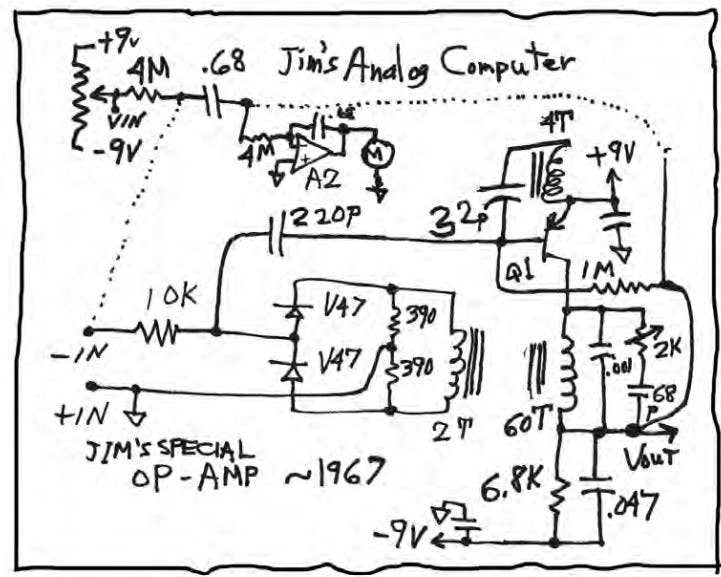 +9v
4M
.68
Jim's Analog Computer
VIN
-9V
4M
.68
A2
M
4T
+9V
32p
220P
Q1
1M
10K
V47
390
-IN
V47
390
2K
.001
68
P
+IN
2T
60T
VOUT
JIM'S SPECIAL
OP-AMP ~1967
6.8K
.047
-9V